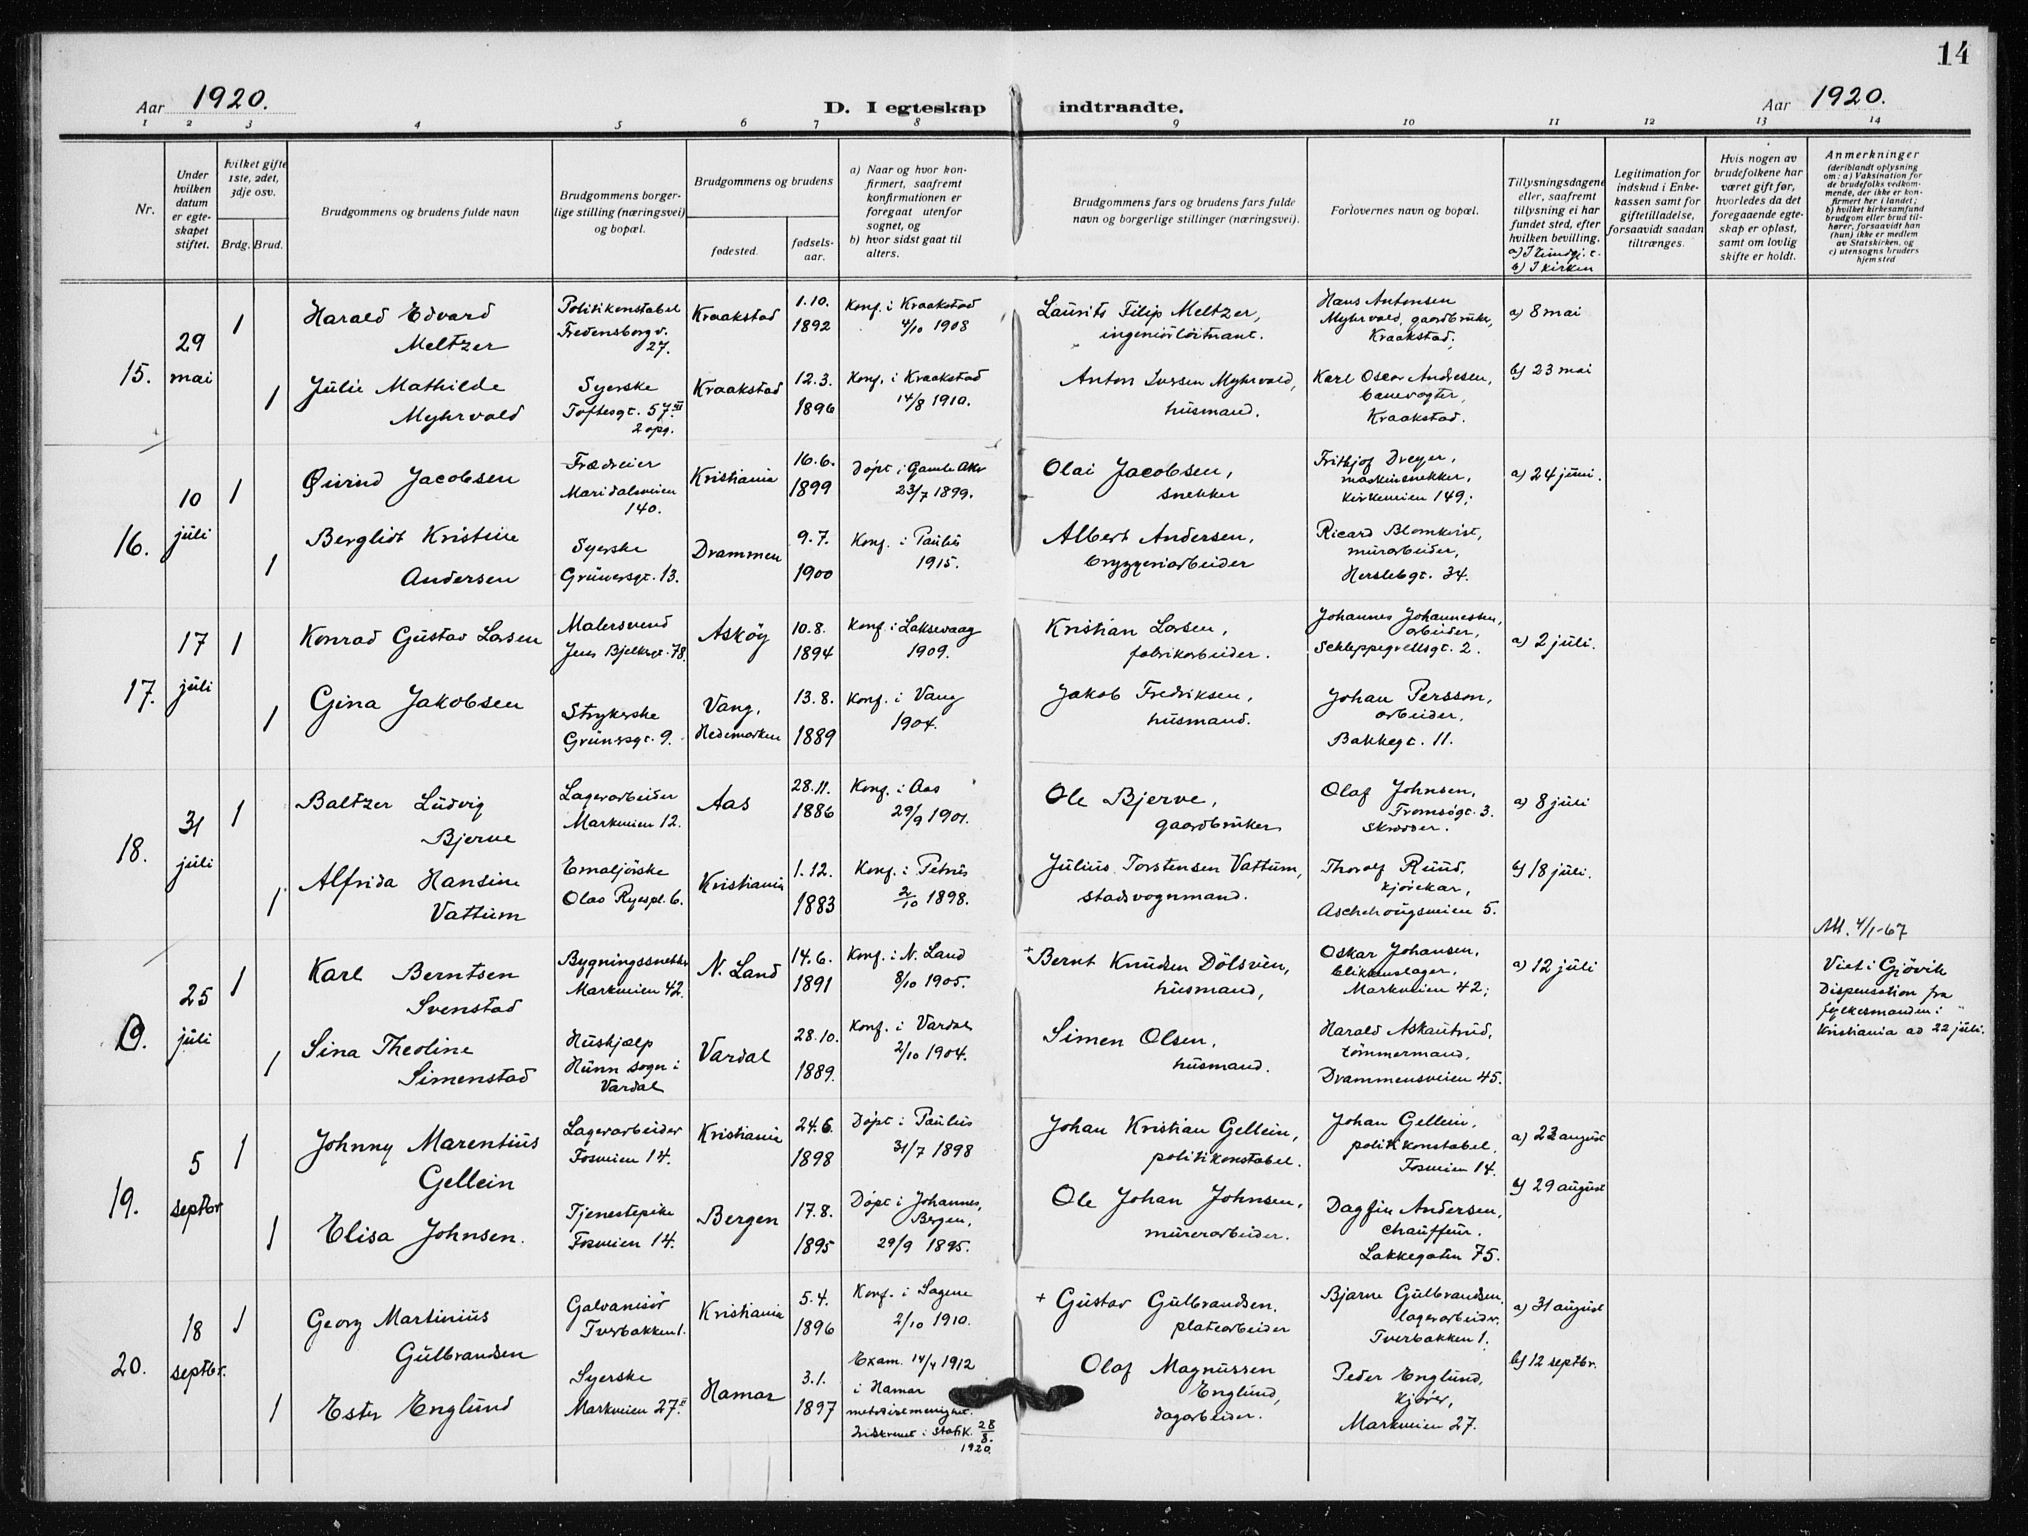 14
Aar 1920.
D. I egteskap indtraadte.
Aar 1920.
1 2 3 4 5 6 7 8 9 10 11 12 13 14
Nr.
Under
hvilken
datum
er egte-
skapet
stiftet.
hvilket gifte
1ste, 2det,
3dje osv.
Brdg. Brud.
Brudgommens og brudens fulde navn
Brudgommens borger-
lige stilling (næringsvei)
og bopæl.
Brudgommens og brudens
fødested.
fødsels-
aar.
a) Naar og hvor kon-
firmert, saafremt
konfirmationen er
foregaat utenfor
sognet, og
b) hvor sidst gaat til
alters.
Brudgommens fars og brudens fars fulde
navn og borgerlige stillinger (næringsvei).
Forlovernes navn og bopæl.
Tillysningsdagene
eller, saafremt
tillysning ei har
fundet sted, efter
hvilken bevilling.
b) I kirken
Legitimation for
indskud i Enke-
kassen samt for
giftetilladelse,
forsaavidt saadan
tiltrænges.
Hvis nogen av
brudefolkene har
været gift før,
hvorledes da det
foregaaende egte-
skap er opløst,
samt om lovlig
skifte er holdt.
Anmerkninger
(deriblandt oplysning
om: a) Vaksination for
de brudefolks vedkom-
mende, der ikke er kon-
firmert her i landet;
b) hvilket kirkesamfund
brudgom eller brud til-
hører, forsaavidt han
(hun) ikke er medlem
av Statskirken, og
c) utensogns bruders
hjemsted
15.
29
mai
1
Harald Edvard
Meltzer
Politikonstabel
Fredensborgv.
27.
Kraakstad
1.10.
1892
Konf. i Kraakstad
4/10 1908
Laurits Filip Meltzer,
ingeniørløitnant.
Hans Antonsen
Myhrvold, gaardbruker,
Kraakstad,
a) 8 mai
1
Julie Mathilde
Myhrvold
Syerske
Toftesgt. 57 III
2 opg.
Kraakstad
12.3.
1896
Konf. i Kraakstad
14/8 1910.
Anton Iversen Myhrvold,
husmand.
Karl Oscar Andresen,
banevogter,
Kraakstad.
b) 23 mai
16.
10
juli
1
Øivind Jacobsen
Maridalsveien
140.
Kristiania
16.6.
1899
Døpt i Gamle Aker
23/7 1899.
Olai Jacobsen,
snekker
Frithjof Dreyer,
maskinsnekker,
Kirkeveien 149;
a) 24 juni.
1
Bergliot Kristine
Andersen
Syerske
Grünersgt. 13.
Drammen
9.7.
1900
Konf. i Paulus
1915.
Albert Andersen,
bryggeriarbeider
Ricard Blomkvist,
murarbeider,
Herslebgt. 34.
17.
17
juli
1
Konrad Gustav Larsen
Malersvend
Jens Bjelkesgt. 78.
Askøy
10.8.
1894
Konf. i Laksevaag
1909.
Kristian Larsen,
fabrikarbeider.
Johannes Johannessen,
arbeider,
Schleppegrellsgt. 2.
a) 2 juli.
1
Gina Jakobsen
Strykerske
Grünersgt. 9.
Vang,
Hedemarken
13.8.
1889
Konf. i Vang
1904.
Jakob Fredriksen,
husmand.
Johan Persson,
arbeider,
Bakkegt. 11.
18.
31
juli
1
Baltzer Ludvig
Bjerve
Lagerarbeider
Markveien 12.
Aas
28.11.
1886
Konf. i Aas
29/9 1901.
Ole Bjerve,
gaardbruker
Olaf Johnsen,
Tromsøgt. 3.
skrædder.
a) 8 juli
1
Alfrida Hansine
Vattum
Emaljørske
Olav Ryespl. 6.
Kristiania
1.12.
1883
Konf. i Petrus
2/10 1898.
Julius Torstensen Vattum,
stadsvognmand.
Thorolf Ruud,
kjørekar,
Aschehougsveien 5.
b) 18 juli.
19.
25
juli
1
Karl Berntsen
Svenstad
Bygningssnekker
Markveien 42.
N. Land
14.6.
1891
Konf. i N. Land
8/10 1905.
+ Bernt Knudsen Dölsvén,
husmand,
Oskar Johansen,
blikkenslager,
Markveien 42;
a) 12 juli
Att. 4/1-67
Viet i Gjövik
Dispensation fra
fylkesmanden i
Kristiania ad 22 juli.
1
Sina Theoline
Simenstad
Hushjælp
Hunn sogn i
Vardal
Vardal
28.10.
1889.
Konf. i Vardal
2/10 1904.
Simen Olsen,
husmand.
Harald Askautrud,
tömmermand,
Drammensveien 45.
19.
5
septbr
1
Johnny Marentius
Gellein
Lagerarbeider
Fosveien 14.
Kristiania
24.6.
1898
Døpt i Paulus
31/7 1898
Johan Kristian Gellein,
politikonstabel.
Johan Gellein,
politikonstabel,
Fosveien 14.
a) 22 august
1
Elisa Johnsen.
Tjenestepike
Fosveien 14.
Bergen
17.8.
1895
Døpt i Johannes,
Bergen,
29/9 1895.
Ole Johan Johnsen,
murerarbeider.
Dagfin Andersen,
chauffeur.
Lakkegaten 75.
b) 29 august
20.
18
septbr.
1
Georg Martinius
Gulbrandsen
Galvanisör
Tverbakken 1.
Kristiania
5.4.
1896
Konf. i Sagene
2/10 1910.
+ Gustav Gulbrandsen,
platearbeider
Bjarne Gulbrandsen,
lagerarbeider,
Tverbakken 1.
a) 31 august
1
Ester Englund
Syerske
Markveien 27 II
Hamar
3.1.
1897
Exam. 14/4 1912
i Hamar
metodistmenighet.
Indskrevet i statsk. 28/8.
1920.
Olaf Magnussen
Englund,
dagarbeider.
Peder Englund,
kjører,
Markveien 27.
b) 12 septbr.